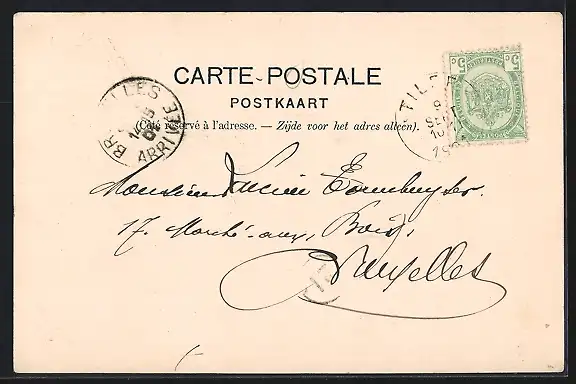 CARTE-POSTALE
POSTKAART
(Côté réservé à l'adresse. — Zijde voor het adres alleen).
BRUXELLES
ARRIVEE
TILFF
5c 5c
Monsieur Lucien
17. Marché-aux, Bois,
Bruxelles